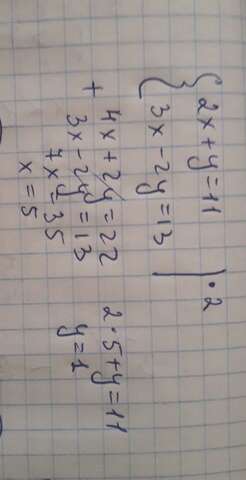 2x + y = 11 | · 2
3x - 2y = 13
+
4x + 2y = 22
3x - 2y = 13
7x = 35
x = 5
2 · 5 + y = 11
y = 1